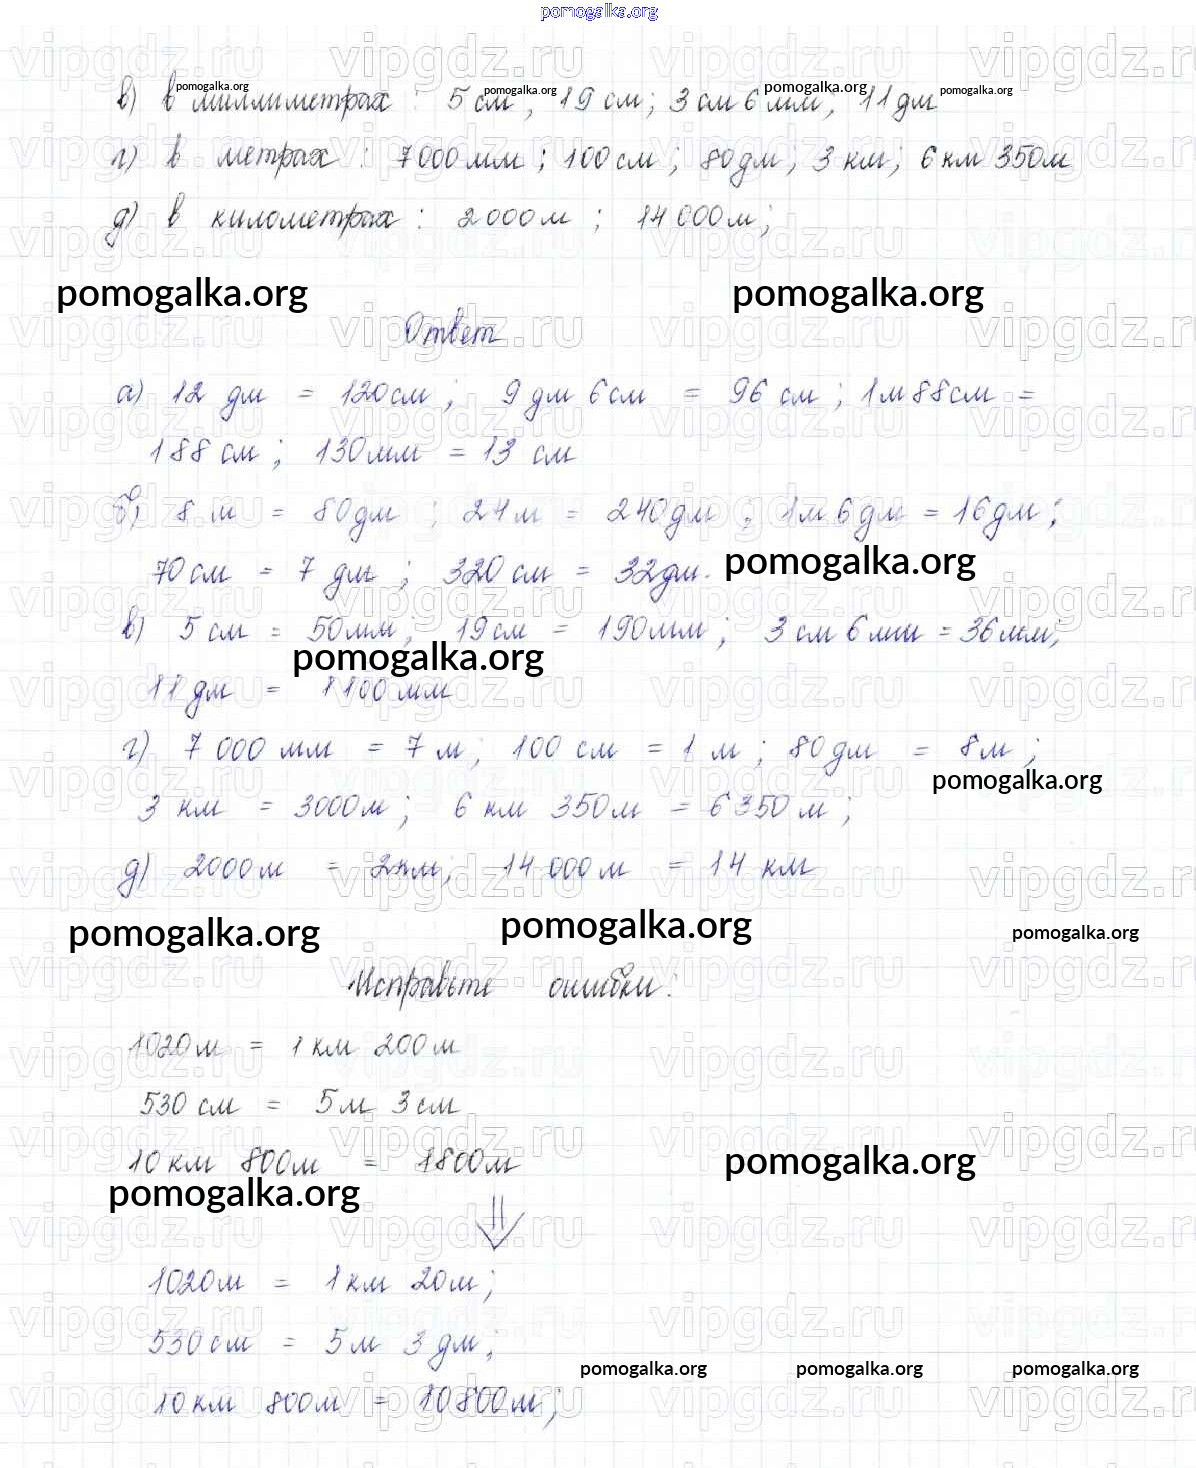 pomogalka.org
в) в миллиметрах : 5 см , 19 см; 3 см 6 мм, 11 дм
г) в метрах : 7000 мм ; 100 см ; 80 дм ; 3 км; 6 км 350 м
д) в километрах : 2000 м ; 14 000 м;
pomogalka.org pomogalka.org
Ответ
а) 12 дм = 120 см ; 9 дм 6 см = 96 см ; 1 м 88 см =
188 см ; 130 мм = 13 см
б) 8 м = 80 дм ; 24 м = 240 дм ; 1 м 6 дм = 16 дм ;
70 см = 7 дм ; 320 см = 32 дм.
pomogalka.org
в) 5 см = 50 мм; 19 см = 190 мм ; 3 см 6 мм = 36 мм;
pomogalka.org
11 дм = 1100 мм
г) 7 000 мм = 7 м ; 100 см = 1 м ; 80 дм = 8 м ;
pomogalka.org
3 км = 3000 м ; 6 км 350 м = 6350 м ;
д) 2000 м = 2 км; 14 000 м = 14 км
pomogalka.org pomogalka.org pomogalka.org
Исправьте ошибки:
1020 м = 1 км 200 м
530 см = 5 м 3 см
10 км 800 м = 1800 м
pomogalka.org pomogalka.org
1020 м = 1 км 20 м ;
530 см = 5 м 3 дм ;
pomogalka.org pomogalka.org pomogalka.org
10 км 800 м = 10800 м ;